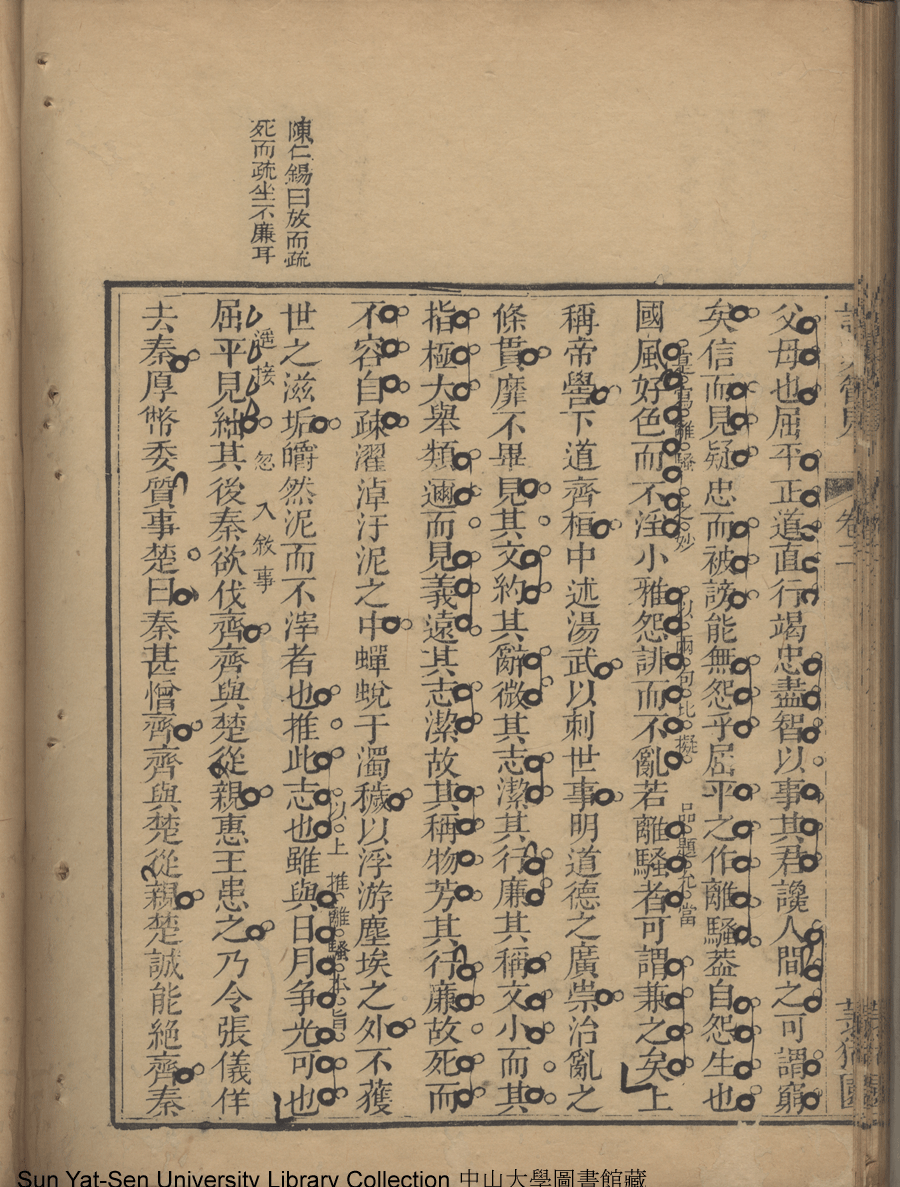 父母也屈平正道直行竭忠盡智以事其君讒人間之可謂窮
矣信而見疑忠而被謗能無怨乎屈平之作離騷葢自怨生也
國風好色而不淫小雅怨誹而不亂若離騷者可謂兼之矣上
以兩句比擬
品題允當
稱帝嚳下道齊桓中述湯武以刺世事明道德之廣崇治亂之
條貫靡不畢見其文約其辭微其志潔其行廉其稱文小而其
指極大舉類邇而見義遠其志潔故其稱物芳其行廉故死而
不容自疎濯淖汙泥之中蟬蛻于濁穢以浮游塵埃之外不獲
世之滋垢皭然泥而不滓者也推此志也雖與日月争光可也
以上推離騷本旨
屈平見絀其後秦欲伐齊齊與楚從親惠王患之乃令張儀佯
遥接
忽入敘事
去秦厚幣委質事楚曰秦甚憎齊齊與楚從親楚誠能絶齊秦
陳仁錫曰放而疏
死而疏坐不廉耳
卷二
Sun Yat-Sen University Library Collection 中山大學圖書館藏